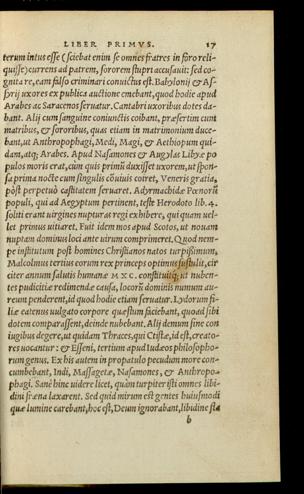 LIBER PRIMVS. 17
terum intus esse (sciebat enim se omnes fratres in foro reli-
quisse) currens ad patrem, sororem stupri accusauit: sed co-
gnita re, eam falso criminari conuictus est. Babylonij & As-
syrij uxores ex publica auctione emebant, quod hodie apud
Arabes ac Saracenos seruatur. Cantabri uxoribus dotes da-
bant. Alij cum sanguine coniunctis coibant, præsertim cum
matribus, & sororibus, quas etiam in matrimonium duce-
bant, ut Anthropophagi, Medi, Magi, & Aethiopum qui-
dam, atq; Arabes. Apud Nasamones & Augylas Libyæ po
pulos moris erat, cum quis primũ duxisset uxorem, ut spon-
sa prima nocte cum singulis cõuiuis coiret, Veneris gratia,
põst perpetuò castitatem seruaret. Adyrmachidæ Pœnorũ
populi, qui ad Aegyptum pertinent, teste Herodoto lib. 4.
soliti erant uirgines nupturas regi exhibere, qui quam uel-
let primus uitiaret. Fuit idem mos apud Scotos, ut nouam
nuptam dominus loci ante uirum comprimeret. Quod nem-
pe institutum post homines Christianos natos turpissimum,
Malcolmus tertius eorum rex princeps optimus sustulit, cir
citer annum salutis humanæ MXC. constituitq; ut nuben-
tes pudicitiæ redimendæ causa, locorũ dominis nummum au-
reum penderent, id quod hodie etiam seruatur. Lydorum fi-
liæ eatenus uulgato corpore quæstum faciebant, quoad sibi
dotem comparassent, deinde nubebant. Alij demum sine con
iugibus degere, ut quidam Thraces, qui Ctistæ, id est, creato-
res uocantur: & Esseni, tertium apud Iudæos philosopho-
rum genus. Ex his autem in propatulo pecudum more con-
cumbebant, Indi, Massagetæ, Nasamones, & Anthropo-
phagi. Sanè hinc uidere licet, quàm turpiter isti omnes libi-
dini fræna laxarent. Sed quid mirum est gentes huiusmodi
quæ lumine carebant, hoc est, Deum ignorabant, libidine stæ
b